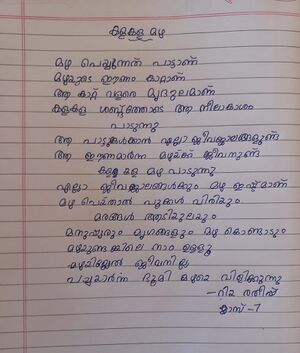 കളകള മഴ
മഴ പെയ്യുന്നത് പാട്ടാണ്
മഴയുടെ ഈണം കാറ്റാണ്
ആ കാറ്റ് വളരെ മൃദുലമാണ്
കളകള ശബ്ദത്തോടെ ആ നീലാകാശം
പാടുന്നു
ആ പാട്ടുകേൾക്കാൻ എല്ലാ ജീവജാലങ്ങളുണ്ട്
ആ ഈണമാർന്ന മഴയ്ക്ക് ജീവനുണ്ട്
കള കള മഴ പാടുന്നു
എല്ലാ ജീവജാലങ്ങൾക്കും മഴ ഇഷ്ടമാണ്
മഴ പെയ്താൽ പൂക്കൾ വിരിയും
മരങ്ങൾ ആടിയുലയും
മനുഷ്യരും മൃഗങ്ങളും മഴ കൊണ്ടാടും
മഴയുണ്ടെങ്കിലെ നാം ഉള്ളൂ
മഴയില്ലേൽ ജീവനില്ല
പച്ചയാർന്ന ഭൂമി മഴയെ വിളിക്കുന്നു
-റിയ രതീഷ്
ക്ലാസ് -7